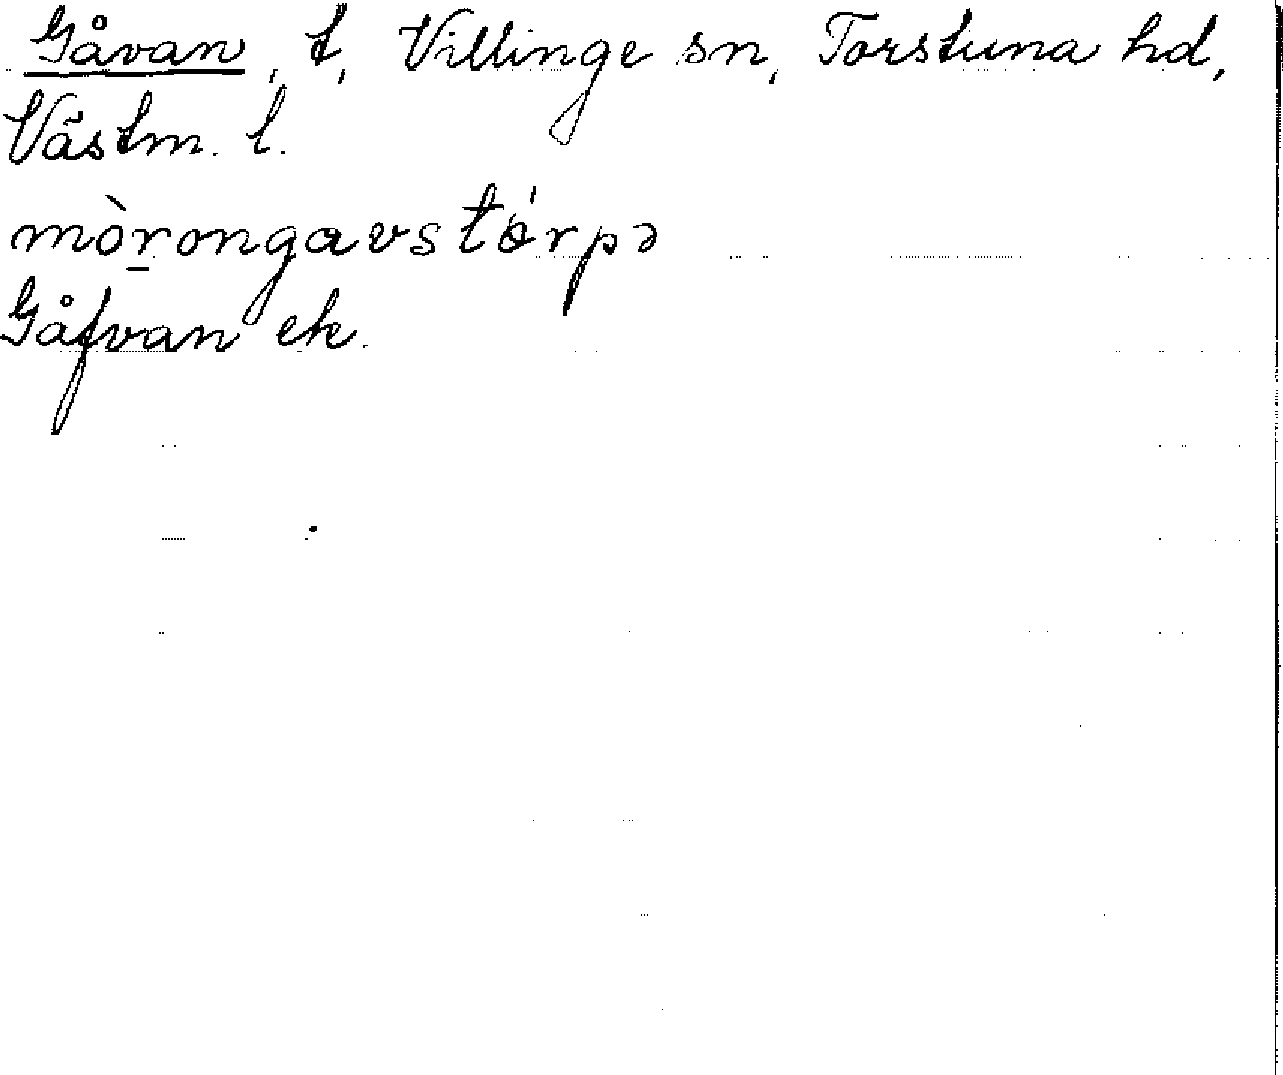 Gåvan, t, Villinge sn, Torstuna hd,
Västm. l.
mòrongavstórpə
Gåfvan ek.